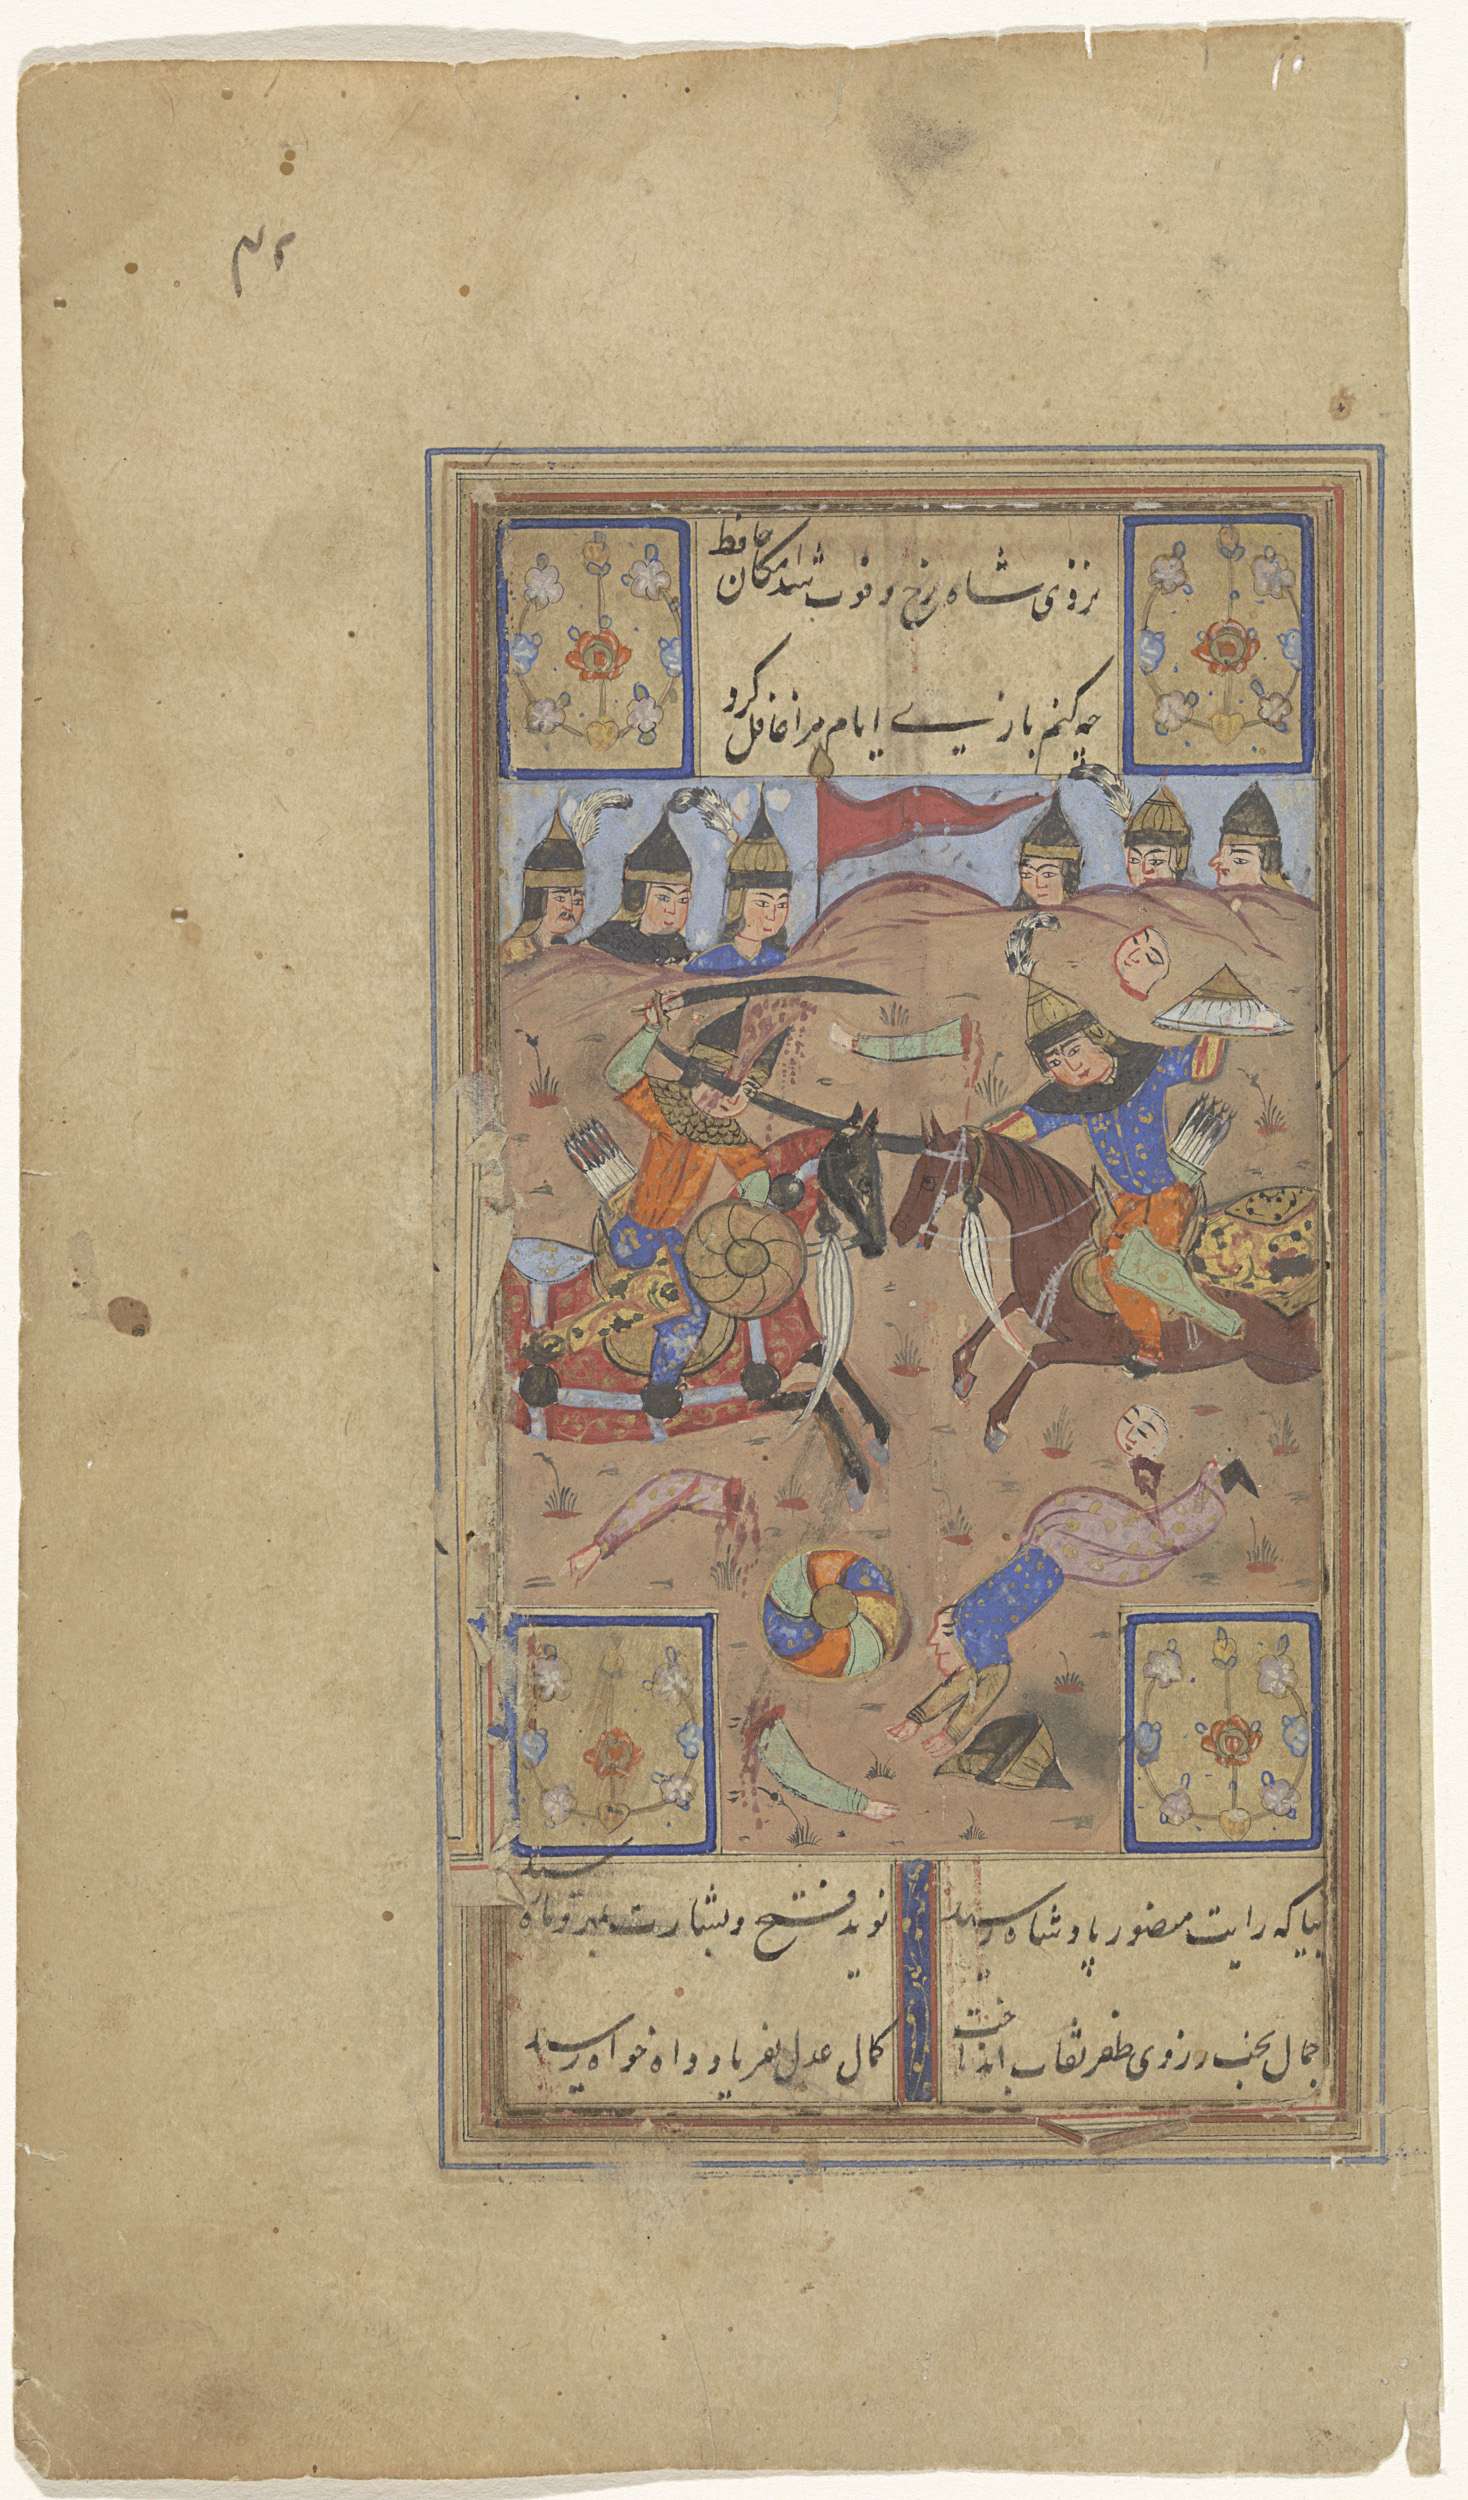 نزدی شاه رخ و فوت شد امکان حافظ
چه کنم بازی ایام مرا غافل کرد
بیا که رایت منصور پادشاه رسید نوید فتح و بشارت بمهر و ماه رسید
جمال بخت ز روی ظفر نقاب انداخت کمال عدل بفریاد دادخواه رسید